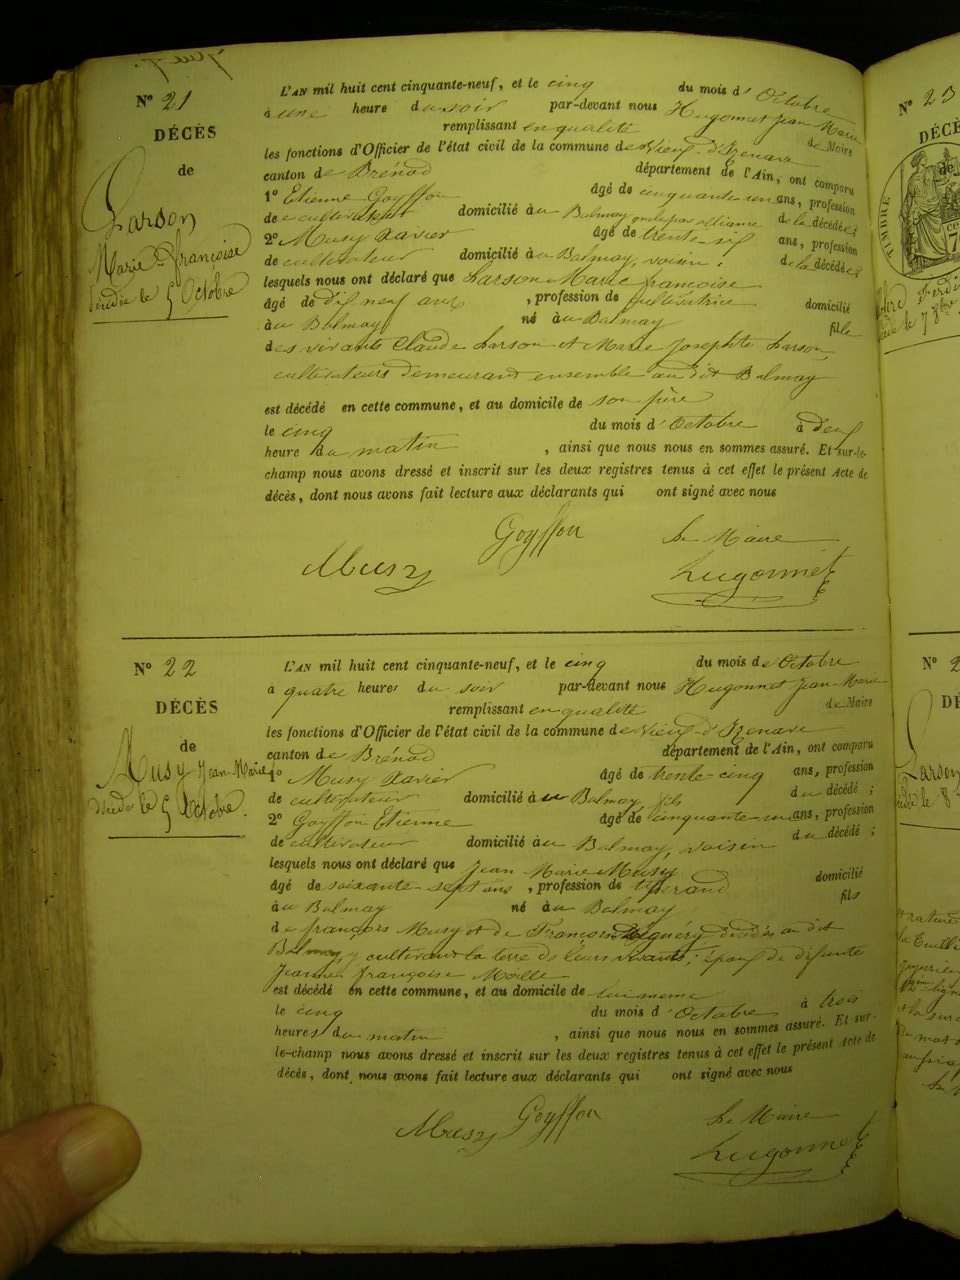 N° 21
DÉCÈS
de
Larson
Marie françoise
décédée le 5 Octobre
L'AN mil huit cent cinquante-neuf, et le cinq du mois d'Octobre
à une heure du soir par-devant nous Hugonnet Jean Marie
remplissant en qualité de Maire
les fonctions d'Officier de l'état civil de la commune de Vieux-d'Izenave
canton de Brénod département de l'Ain, ont comparu
1° Etienne Goyffon âgé de cinquante-un ans, profession
de cultivateur domicilié au Balmay oncle par alliance de la décédée;
2° Musy Xavier âgé de trente-six ans, profession
de cultivateur domicilié au Balmay, voisin, de la décédée;
lesquels nous ont déclaré que Larson Marie françoise
âgé de dix neuf ans, profession de cultivatrice domicilié
à u Balmay né à u Balmay fille
des vivants Claude Larson et Marie Josephte Larson,
cultivateurs demeurant ensemble au dit Balmay
est décédé en cette commune, et au domicile de son père
le cinq du mois d'Octobre à deux
heure du matin, ainsi que nous nous en sommes assuré. Et sur-le-
champ nous avons dressé et inscrit sur les deux registres tenus à cet effet le présent Acte de
décès, dont nous avons fait lecture aux déclarants qui ont signé avec nous
Goyffon
Le Maire
Musy
Hugonnet
N° 22
DÉCÈS
de
Musy Jean-Marie
décédé le 5 Octobre.
L'AN mil huit cent cinquante-neuf, et le cinq du mois de Octobre
à quatre heures du soir par-devant nous Hugonnet Jean-Marie
remplissant en qualité de Maire
les fonctions d'Officier de l'état civil de la commune de Vieux-d'Izenave
canton de Brénod département de l'Ain, ont comparu
1° Musy Xavier âgé de trente-cinq ans, profession
de cultivateur domicilié à u Balmay, fils du décédé;
2° Goyffon Etienne âgé de cinquante-un ans, profession
de cultivateur domicilié à u Balmay, voisin du décédé;
lesquels nous ont déclaré que Jean Marie Musy
âgé de soixante-sept ans, profession de tisserand domicilié
à u Balmay né à u Balmay fils
de françois Musy et de Françoise décédés au dit
Balmay, y cultivant la terre de leurs vivants; époux de défunte
Jeanne françoise Molle
est décédé en cette commune, et au domicile de lui même
le cinq du mois d'Octobre à trois
heures du matin, ainsi que nous nous en sommes assuré. Et sur-
le-champ nous avons dressé et inscrit sur les deux registres tenus à cet effet le présent Acte de
décès, dont nous avons fait lecture aux déclarants qui ont signé avec nous
Musy Goyffon
Le Maire
Hugonnet
N° 23
DÉCÈS
de
TIMBRE